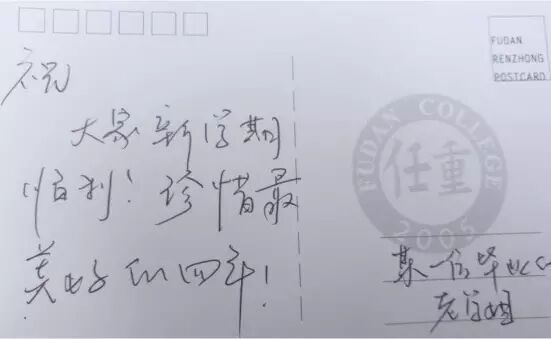 FUDAN
RENZHONG
POSTCARD
祝
大家新学期
利！珍惜最
美好的四年！
FUDAN COLLEGE
任重
2005
某一位毕业
老学姐